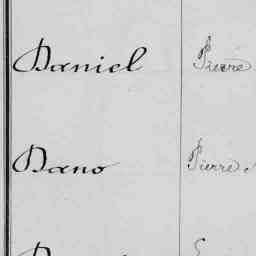 Daniel Pierre
Dano Pierre